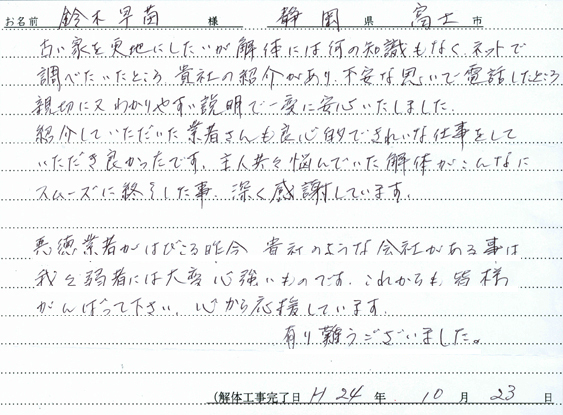 お名前 鈴木早苗 様 静岡 県 富士 市
古い家を更地にしたいが解体には何の知識もなく、ネットで
調べたいたところ、貴社の紹介があり、不安な思いで電話したところ
親切に又わかりやすい説明で一度に安心いたしました。
紹介していただいた業者さんも良心的できれいな仕事をして
いただき良かったです。主人共々悩んでいた解体がこんなに
スムーズに終了した事、深く感謝しています。
悪徳業者がはびこる昨今 貴社のような会社がある事は
我々弱者には大変心強いものです。これからも皆様
がんばって下さい。心から応援しています。
有り難うございました。
(解体工事完了日 H 24 年 10 月 23 日